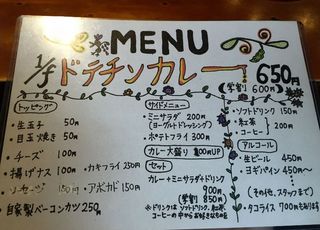 MENU
1/f ドテチンカレー 650円
(学割) 600円
トッピング
・生玉子 50円
・目玉焼き 50円
・チーズ 100円
・揚げナス 100円 ・カキフライ 250円
・ソーセージ 150円 ・アボカド 150円
・自家製ベーコンカツ 250円
サイドメニュー
・ミニサラダ 200円
(ヨーグルトドレッシング)
・ポテトフライ 300円
カレー大盛り 100円UP
セット
カレー+ミニサラダ+ドリンク
900円
(学割) 850円
※ドリンクはソフトドリンク、紅茶、
コーヒーの中からお好きなものを
・ソフトドリンク 150円
・紅茶 200円
・コーヒー
アルコール
・生ビール 450円
・ヨギパイン 450円〜
(その他、スタッフまで)
・タコライス 700円もあります